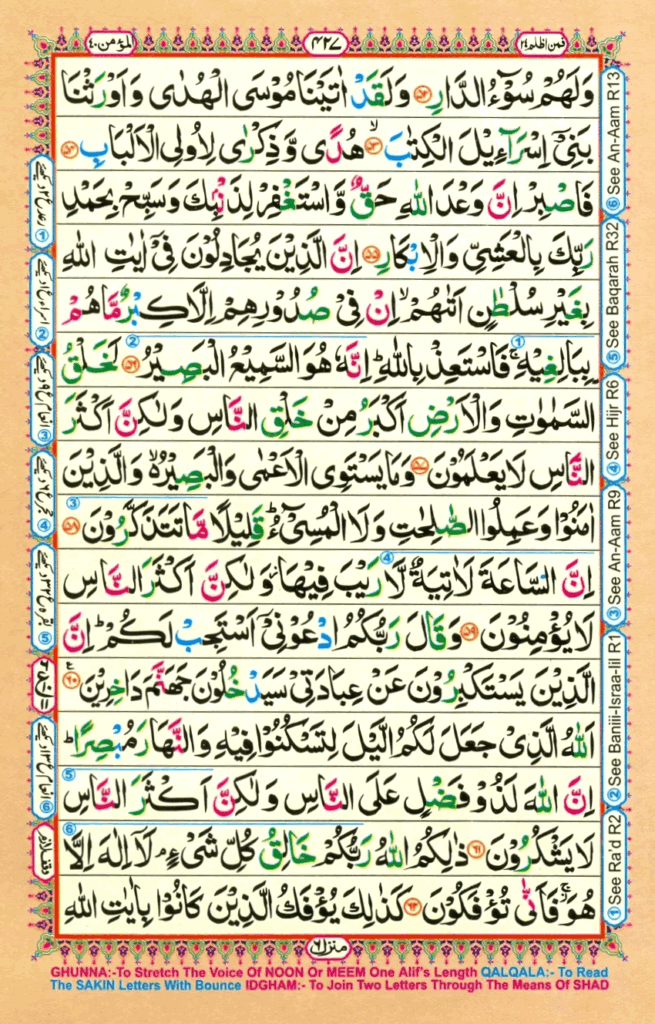 فمن اظلم ٢٤
٤٢٧
المؤمن ٤٠
وَلَهُمْ سُوْٓءُ الدَّارِ ﴿٥٢﴾ وَلَقَدْ اٰتَيْنَا مُوْسَى الْهُدٰى وَاَوْرَثْنَا
بَنِيْٓ اِسْرَآءِيْلَ الْكِتٰبَ ﴿٥٣﴾ۙ هُدًى وَّذِكْرٰى لِاُولِى الْاَلْبَابِ ﴿٥٤﴾
فَاصْبِرْ اِنَّ وَعْدَ اللّٰهِ حَقٌّ وَّاسْتَغْفِرْ لِذَنْۢبِكَ وَسَبِّحْ بِحَمْدِ
رَبِّكَ بِالْعَشِيِّ وَالْاِبْكَارِ ﴿٥٥﴾ اِنَّ الَّذِيْنَ يُجَادِلُوْنَ فِيْٓ اٰيٰتِ اللّٰهِ
بِغَيْرِ سُلْطٰنٍ اَتٰىهُمْۙ اِنْ فِيْ صُدُوْرِهِمْ اِلَّا كِبْرٌ مَّا هُمْ
بِبَالِغِيْهِۚ فَاسْتَعِذْ بِاللّٰهِؕ اِنَّهٗ هُوَ السَّمِيْعُ الْبَصِيْرُ ﴿٥٦﴾ لَخَلْقُ
السَّمٰوٰتِ وَالْاَرْضِ اَكْبَرُ مِنْ خَلْقِ النَّاسِ وَلٰكِنَّ اَكْثَرَ
النَّاسِ لَا يَعْلَمُوْنَ ﴿٥٧﴾ وَمَا يَسْتَوِى الْاَعْمٰى وَالْبَصِيْرُ ۙ وَالَّذِيْنَ
اٰمَنُوْا وَعَمِلُوا الصّٰلِحٰتِ وَلَا الْمُسِيْٓءُؕ قَلِيْلًا مَّا تَتَذَكَّرُوْنَ ﴿٥٨﴾
اِنَّ السَّاعَةَ لَاٰتِيَةٌ لَّا رَيْبَ فِيْهَا وَلٰكِنَّ اَكْثَرَ النَّاسِ
لَا يُؤْمِنُوْنَ ﴿٥٩﴾ وَقَالَ رَبُّكُمُ ادْعُوْنِيْٓ اَسْتَجِبْ لَكُمْؕ اِنَّ
الَّذِيْنَ يَسْتَكْبِرُوْنَ عَنْ عِبَادَتِيْ سَيَدْخُلُوْنَ جَهَنَّمَ دَاخِرِيْنَ ﴿٦٠﴾
اَللّٰهُ الَّذِيْ جَعَلَ لَكُمُ الَّيْلَ لِتَسْكُنُوْا فِيْهِ وَالنَّهَارَ مُبْصِرًاؕ
اِنَّ اللّٰهَ لَذُوْ فَضْلٍ عَلَى النَّاسِ وَلٰكِنَّ اَكْثَرَ النَّاسِ
لَا يَشْكُرُوْنَ ﴿٦١﴾ ذٰلِكُمُ اللّٰهُ رَبُّكُمْ خَالِقُ كُلِّ شَيْءٍۘ لَآ اِلٰهَ اِلَّا
هُوَۚ فَاَنّٰى تُؤْفَكُوْنَ ﴿٦٢﴾ كَذٰلِكَ يُؤْفَكُ الَّذِيْنَ كَانُوْا بِاٰيٰتِ اللّٰهِ
منزل ٦
6 See An-Aam R13
5 See Baqarah R32
4 See Hijr R6
3 See An-Aam R9
2 See Baniii-Israa-Iil R1
1 See Ra'd R2
GHUNNA:-To Stretch The Voice Of NOON Or MEEM One Alif's Length QALQALA:- To Read
The SAKIN Letters With Bounce IDGHAM:- To Join Two Letters Through The Means Of SHAD